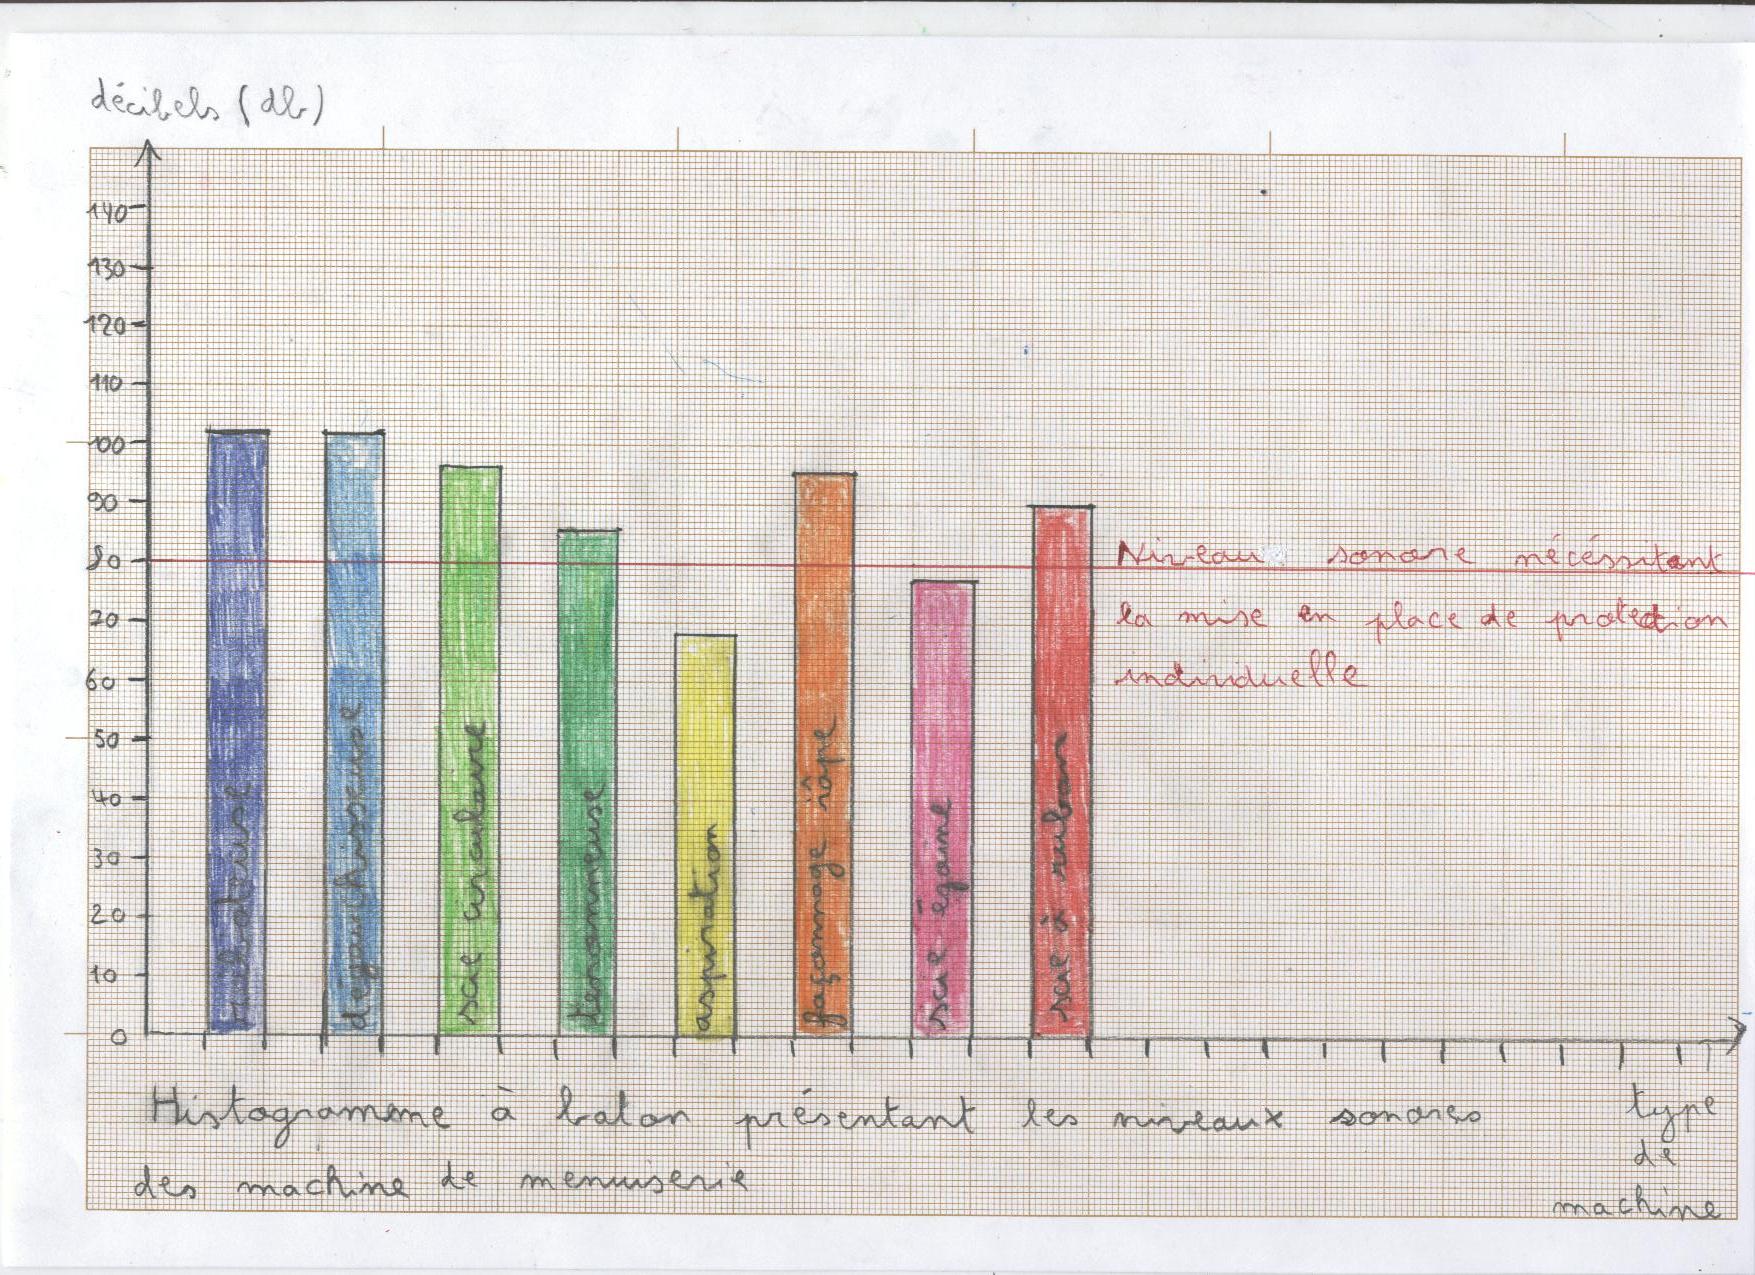 décibels (db)
140
130
120
110
100
90
80
70
60
50
40
30
20
10
0
raboteuse
dégauchisseuse
scie circulaire
tenonneuse
aspiration
façonnage râpe
scie égoine
scie à ruban
Niveau sonore nécéssitant
la mise en place de protection
individuelle
Histogramme à baton présentant les niveaux sonores
des machine de menuiserie
type
de
machine